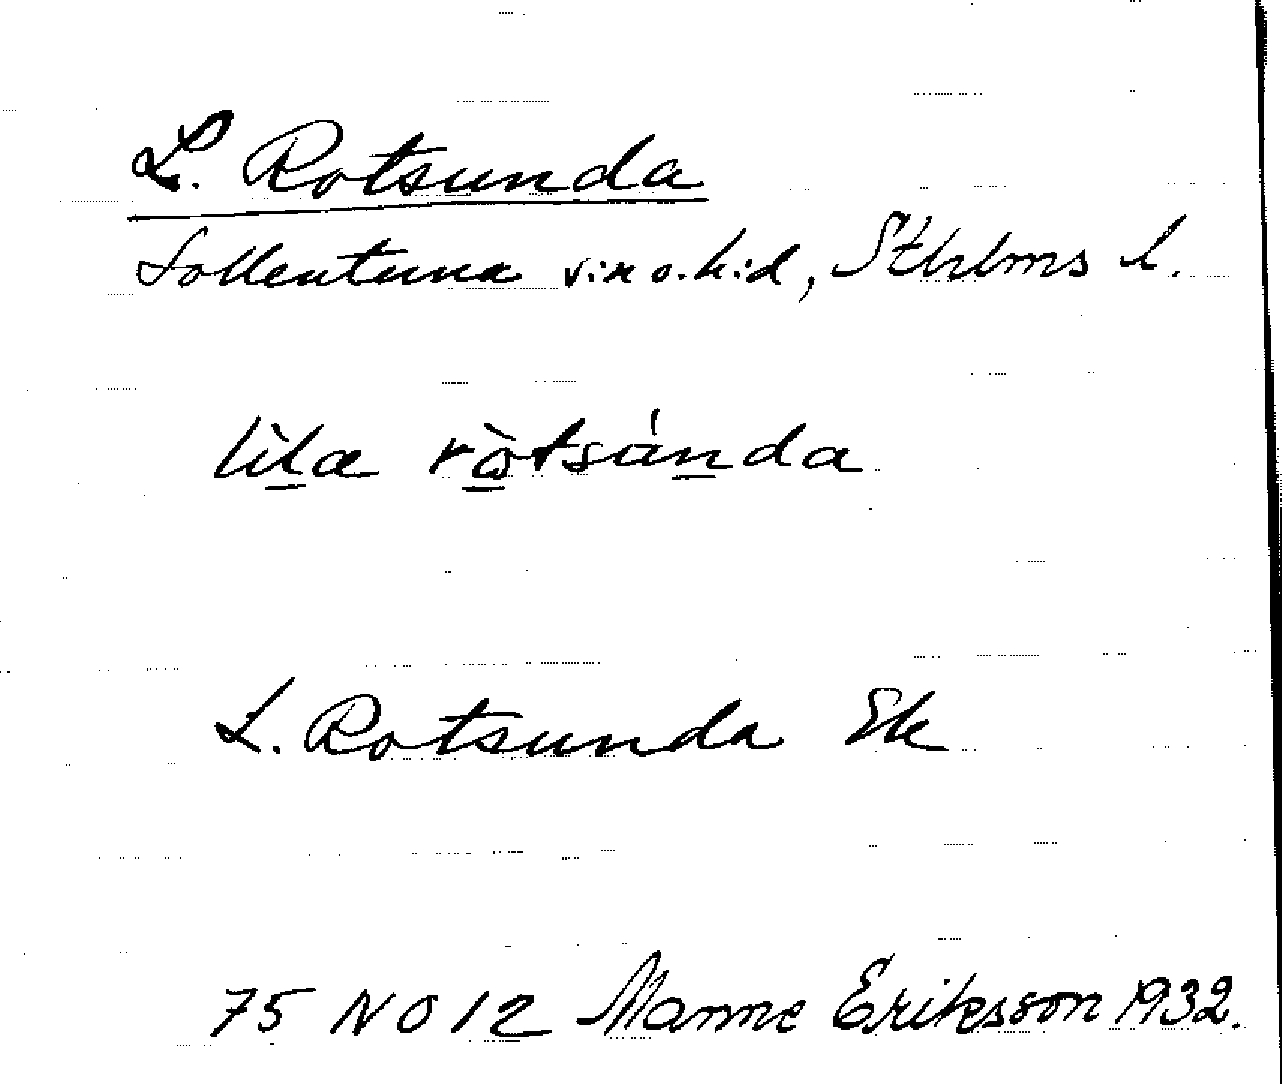 L. Rotsunda
Sollentuna s:n o. h:d, Sthlms l.
lìla ròtsúnda
L. Rotsunda Ek
75 NO 12 Manne Eriksson 1932.